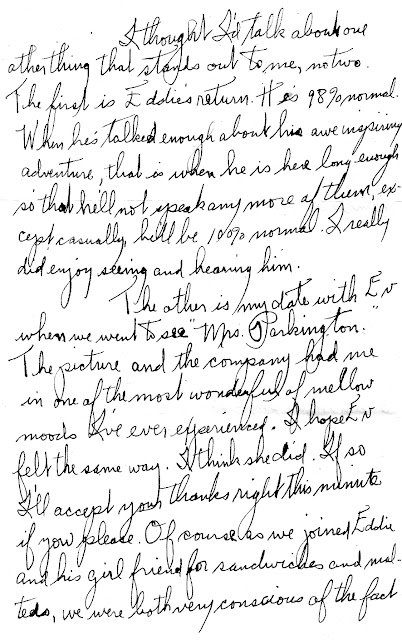 I thought I'd talk about one
other thing that stands out to me, no two.
The first is Eddie's return. He is 98% normal.
When he's talked enough about his awe inspiring
adventure, that is when he is here long enough
so that he'll not speak any more of them, ex-
cept casually, he'll be 100% normal. I really
did enjoy seeing and hearing him.
The other is my date with Ev
when we went to see "Mrs. Parkington."
The picture and the company had me
in one of the most wonderful of mellow
moods I've ever experienced. I hope Ev
felt the same way. I think she did. If so
I'll accept your thanks right this minute
if you please. Of course as we joined Eddie
and his girl friend for sandwiches and mal-
teds, we were both very conscious of the fact